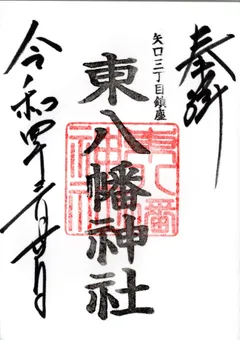 奉拝
矢口三丁目鎮座
東八幡神社
東八幡神社
令和四年三月廿日